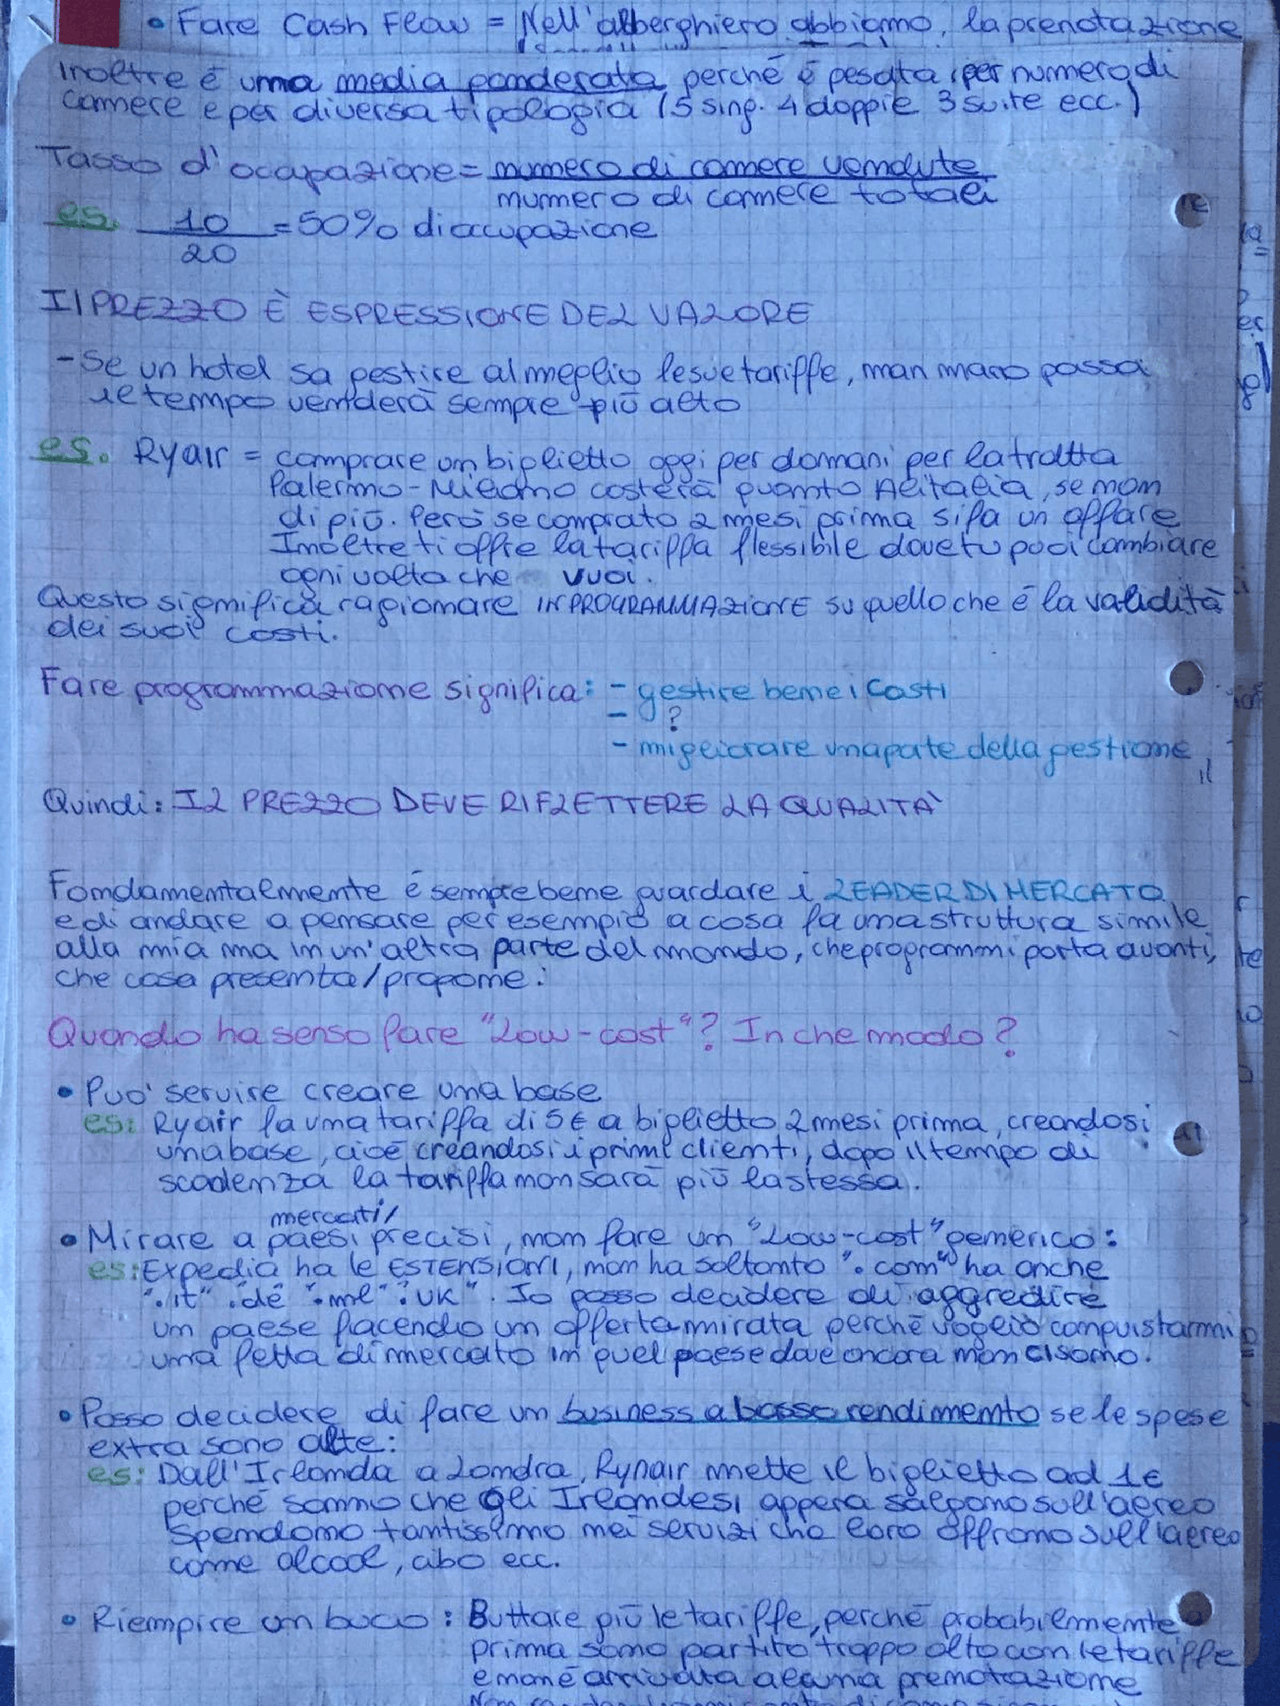 • Fare Cash Flow = Nell'alberghiero abbiamo, la prenotazione
Inoltre è una media ponderata perché è pesata per numero di
camere e per diversa tipologia (5 sing. 4 doppie 3 suite ecc.)
Tasso d'ocapazione = numero di camere vendute
numero di camere totali
es. 10 = 50% di occupazione
20
Il PREZZO È ESPRESSIONE DEL VALORE
- Se un hotel sa gestire al meglio le sue tariffe, man mano passa
il tempo venderà sempre più alto
es. Ryair = comprare un biglietto oggi per domani per la tratta
Palermo - Milano costerà quanto Alitalia, se non
di più. Però se comprato 2 mesi prima si fa un affare
Inoltre ti offre la tariffa flessibile dove tu puoi cambiare
ogni volta che vuoi.
Questo significa ragionare IN PROGRAMMAZIONE su quello che è la validità
dei suoi costi.
Fare programmazione significa: - gestire bene i costi
- ?
- migliorare una pate della gestione
il
Quindi: IL PREZZO DEVE RIFLETTERE LA QUALITÀ
Fondamentalmente è sempre bene guardare i LEADER DI MERCATO
e di andare a pensare per esempio a cosa fa una struttura simile
alla mia ma in un'altra parte del mondo, che programmi porta avanti,
che cosa presenta/propone.
Quando ha senso fare "Low-cost"? In che modo?
• Puo' servire creare una base
es: Ryair fa una tariffa di 5€ a biglietto 2 mesi prima, creandosi
una base, cioè creandosi i primi clienti, dopo il tempo di
scadenza la tariffa non sarà più la stessa.
mercati/
• Mirare a paesi precisi, non fare un "Low-cost" generico:
es: Expedia ha le ESTENSIONI, non ha soltanto ".com" ha anche
".it" .de" .nl" .UK". Io posso decidere di aggredire
un paese facendo un offerta mirata perché voglio conquistarmi
una fetta di mercato in quel paese dove ancora non ci sono.
• Posso decidere di fare un business a basso rendimento se le spese
extra sono alte:
es: Dall'Irlanda a Londra, Rynair mette il biglietto ad 1€
perché sanno che gli Irlandesi appena salgono sull'aereo
spendono tantissimo nei servizi che loro offrono sull'aereo
come alcool, cibo ecc.
• Riempire un buco: Buttare giù le tariffe, perché probabilmente
prima sono partito troppo alto con le tariffe
e non è arrivata alcuna prenotazione